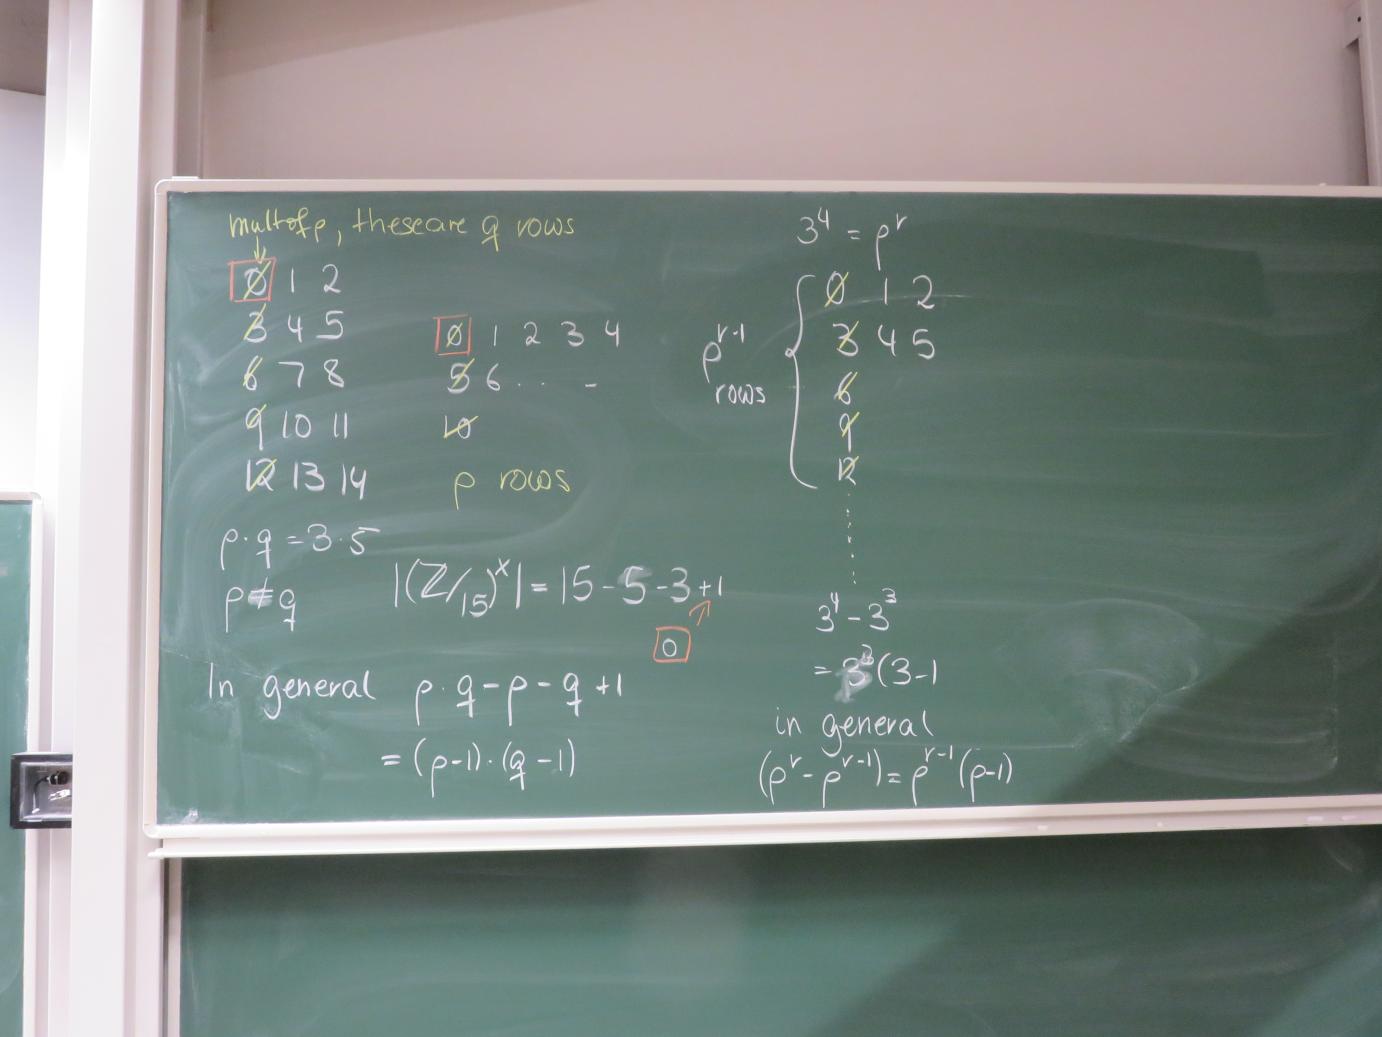 mult of p, these are q rows
0 1 2
3 4 5
6 7 8
9 10 11
12 13 14
0 1 2 3 4
5 6 . . . -
10
p rows
p·q = 3·5
p ≠ q
|(Z/15)^x| = 15 - 5 - 3 + 1
0
In general p·q - p - q + 1
= (p-1)·(q-1)
3^4 = p^r
p^{r-1}
rows
0 1 2
3 4 5
6
9
12
3^4 - 3^3
= 3^3(3-1
in general
(p^r - p^{r-1}) = p^{r-1}(p-1)